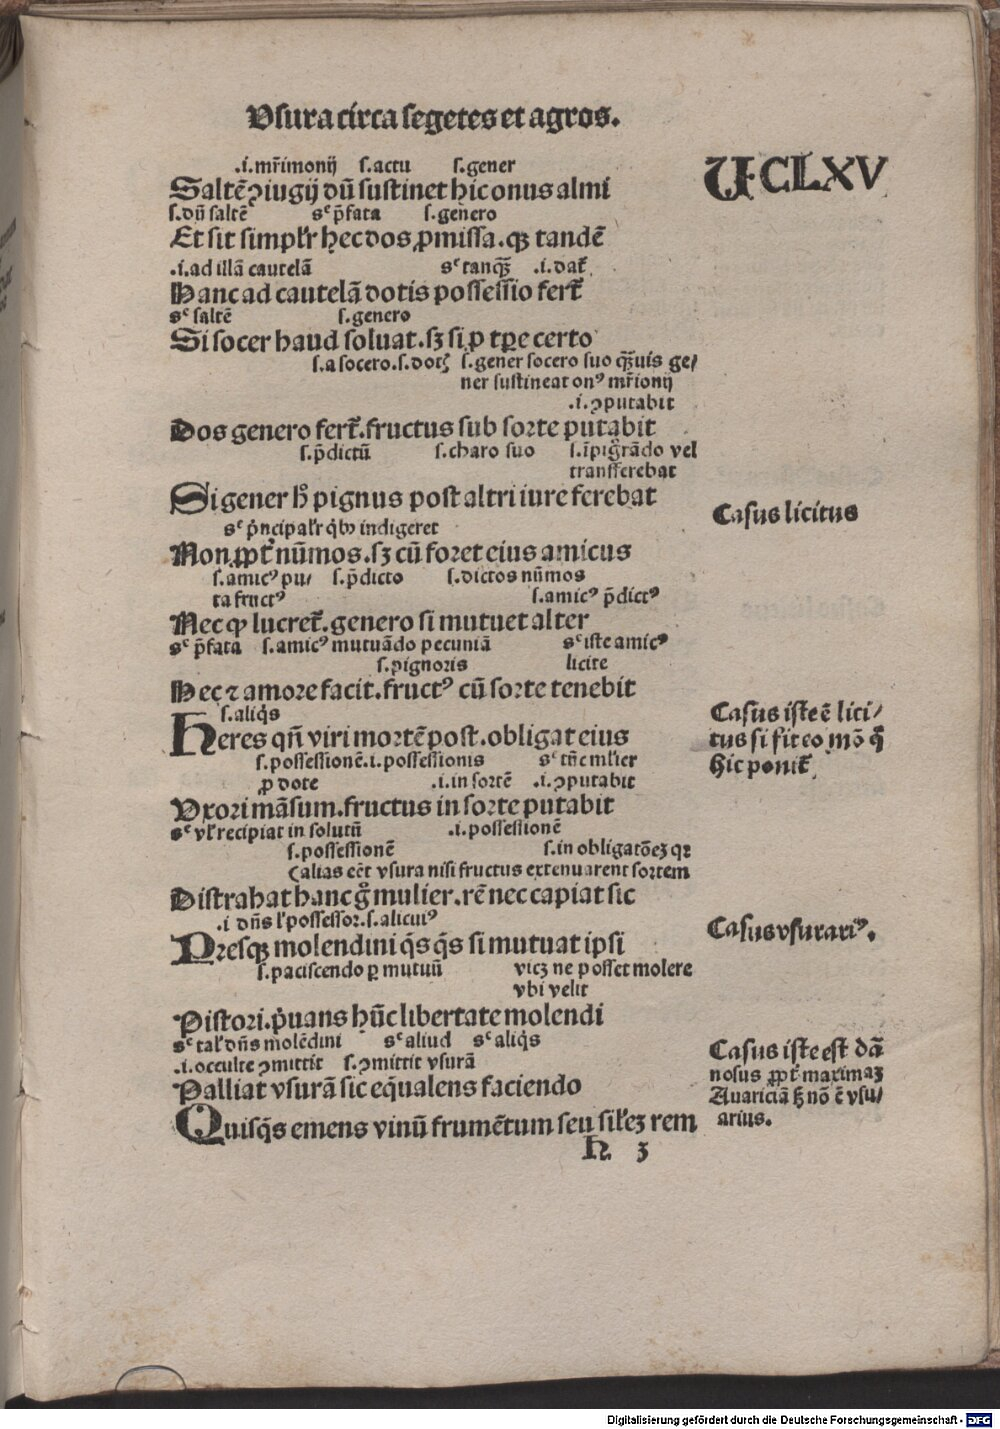 Usura circa segetes et agros.
U CLXV
.i. mr̄imonij s. actu s. gener
Saltē ꝯiugij dū sustinet hic onus almi
s. dū saltē sꝰ p̄fata s. genero
Et sit simplr̄ hec dos ꝓmissa. qꝫ tandē
.i. ad illā cautelā sꝰ tanqꝫ̄ .i. dat᷑
Hanc ad cautelā dotis possessio fert᷑
sꝰ saltē s. genero
Si socer haud soluat. sꝫ si ꝓ tꝑe certo
s. a socero. s. doti s. gener socero suo qꝫ̄uis ge/
ner sustineat onꝰ mr̄ionij
.i. ꝯputabit
Dos genero fert᷑. fructus sub sorte putabit
s. p̄dictū s. charo suo s. īpigr̄ādo vel
transferebat
Si gener hͦ pignus post altri iure ferebat
Casus licitus
sꝰ p̄ncipalr̄ qͥbꝰ indigeret
Non ꝓpt᷑ nūmos. sꝫ cū foret eius amicus
s. amicꝰ pu/ s. p̄dicto s. dictos nūmos
ta fructꝰ s. amicꝰ p̄dictꝰ
Nec ꝙ lucret᷑. genero si mutuet alter
sꝰ p̄fata s. amicꝰ mutuādo pecuniā sꝰ iste amicꝰ
s. pignoris licite
Hec ⁊ amore facit. fructꝰ cū sorte tenebit
s. aliqͥs
Heres qn̄ viri mortē post. obligat eius
Casus iste ē lici/
tus si fit eo mō qͦ
hic ponit᷑
s. possessionē .i. possessionis sꝰ tūc ml̓ier
ꝓ dote .i. in sortē .i. ꝯputabit
Vxori māsum. fructus in sorte putabit
sꝰ vl̓ recipiat in solutū .i. possessionē
s. possessionē s. in obligatōeꝫ qꝛ
(alias eēt vsura nisi fructus extenuarent sortem
Distrahat hanc gͦ mulier. rē nec capiat sic
.i dn̄s l̓ possessor. s. alicuiꝰ
Presqꝫ molendini qͥsqͥs si mutuat ipsi
Casus vsurariꝰ.
s. paciscendo ꝑ mutuū vicꝫ ne posset molere
vbi velit
Pistori. p̓uans hūc libertate molendi
sꝰ tal̓ dn̄s molēdini sꝰ aliud sꝰ aliqͥs
.i. occulte ꝯmittit s. ꝯmittit vsurā
Palliat vsurā sic eq̄ualens faciendo
Casus iste est dā
nosus ꝓpt᷑ maximaꝫ
Auariciā hꝫ nō ē vsu/
arius.
Quisqͥs emens vinū frumētum seu sil̓eꝫ rem
h 3
Digitalisierung gefördert durch die Deutsche Forschungsgemeinschaft - DFG